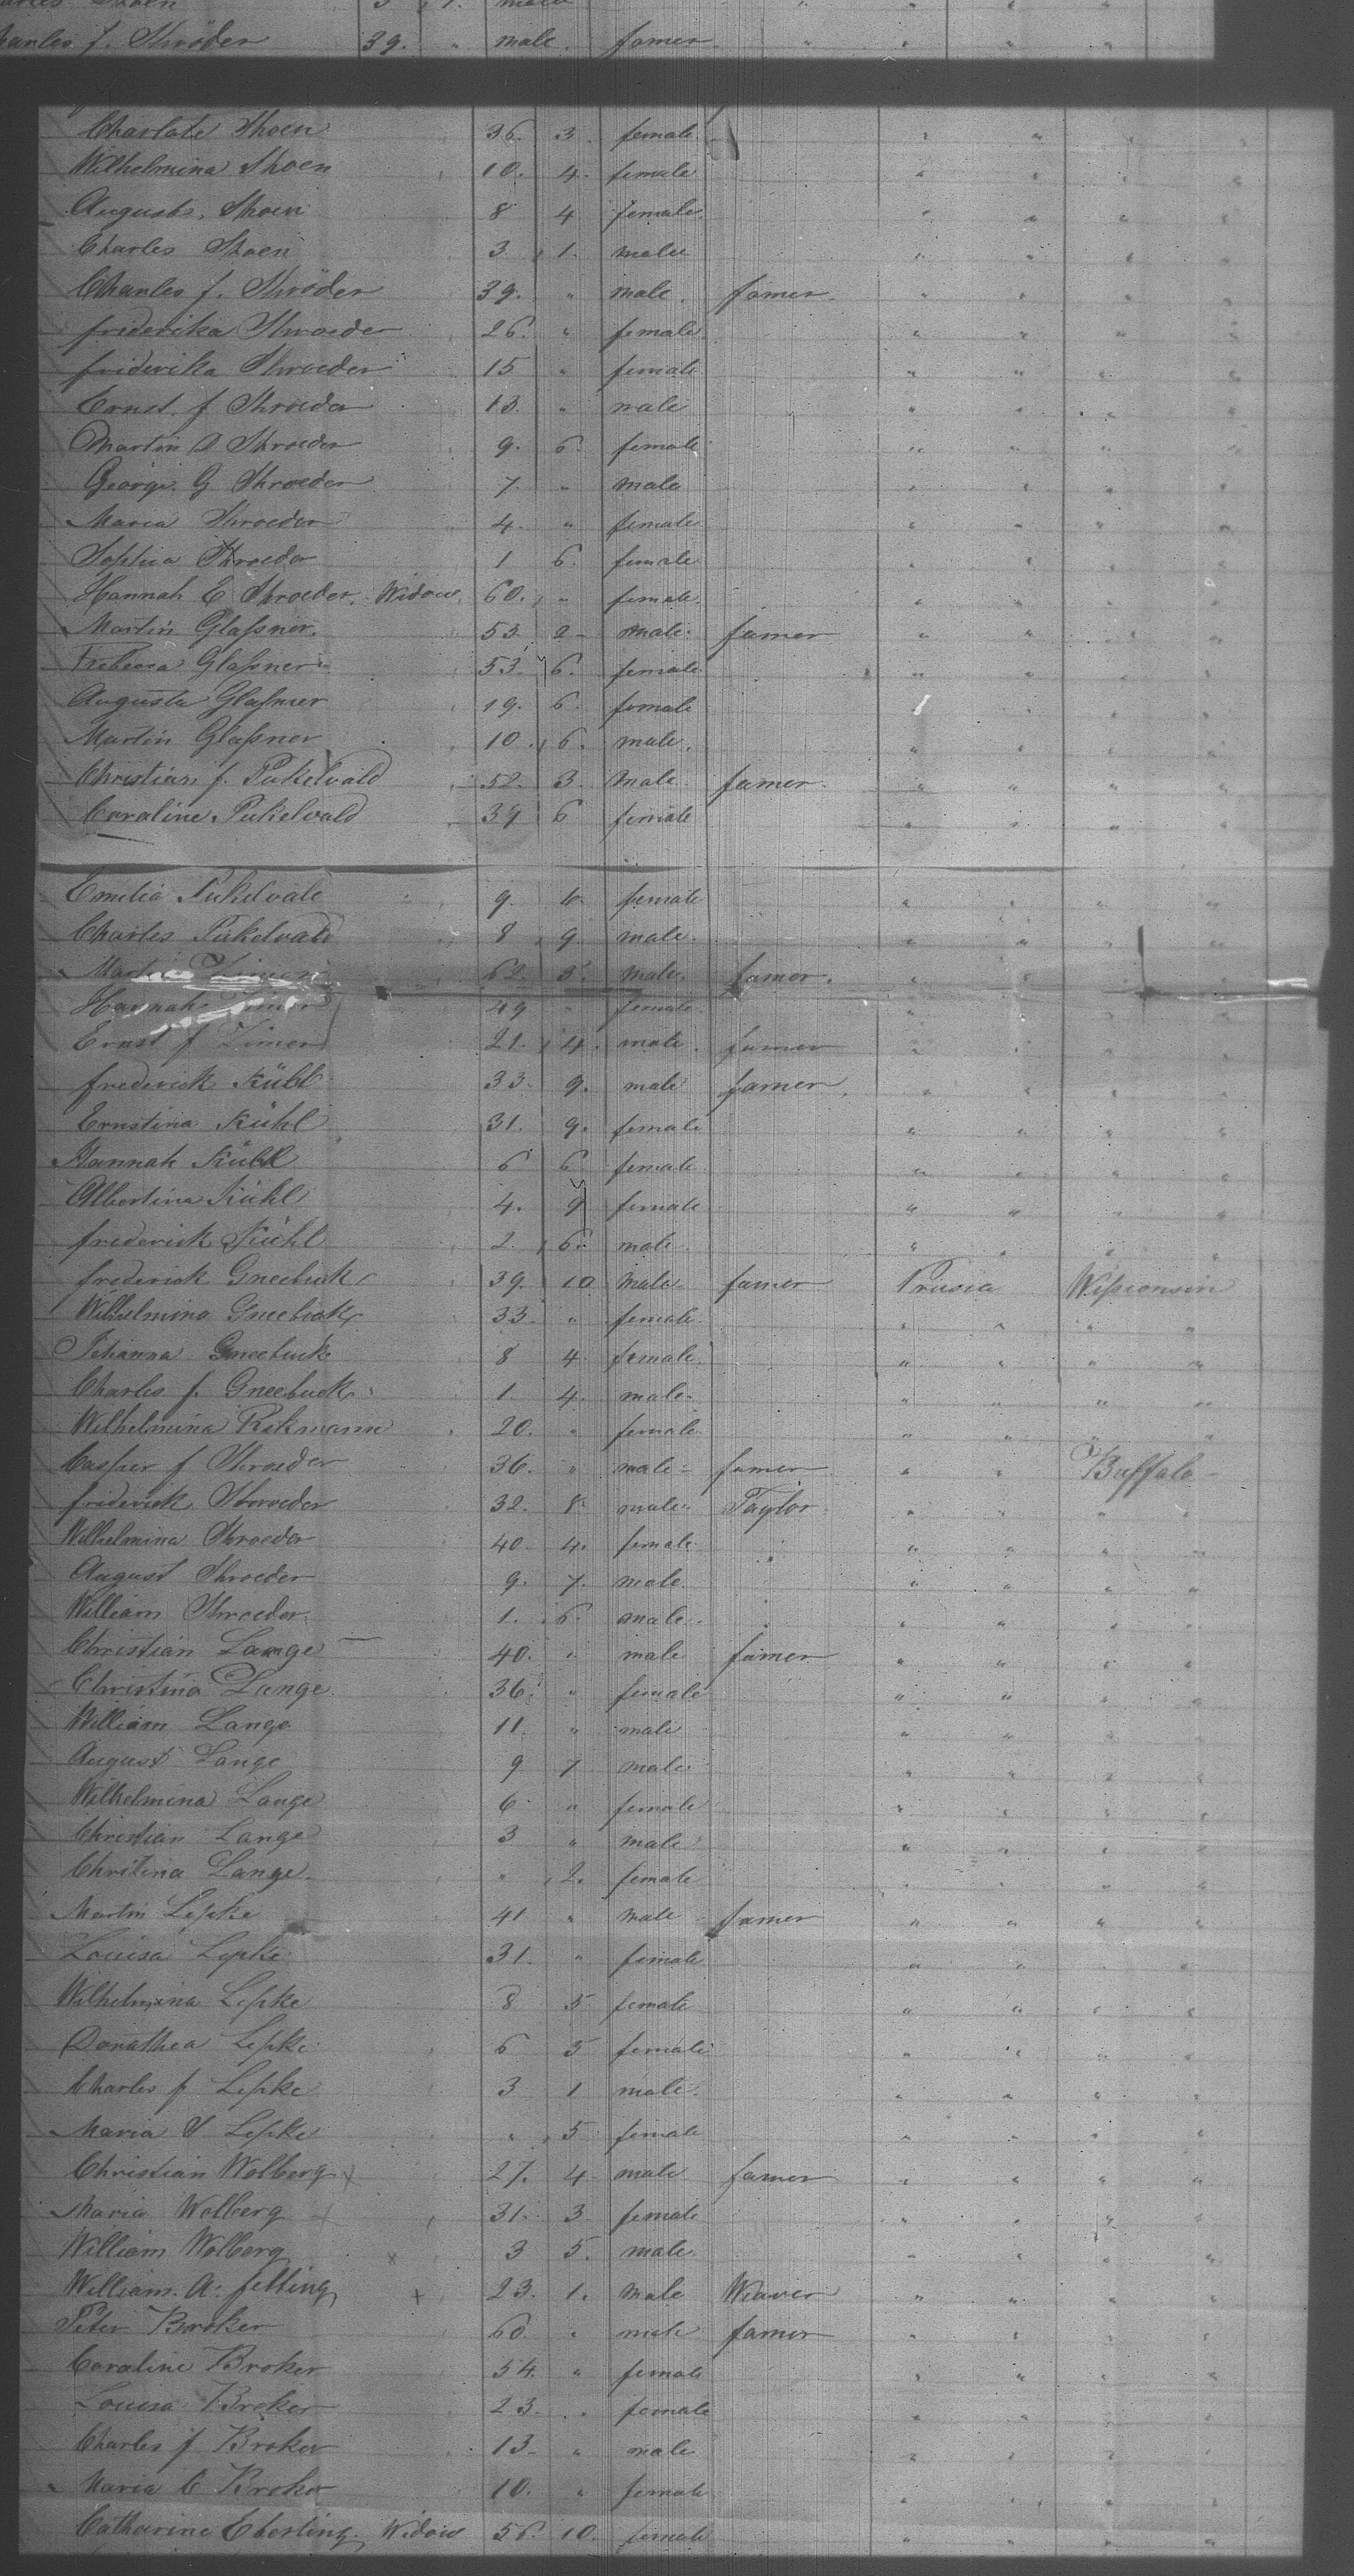 Charles f. Shröder 39. " male. famer " " " "
Charlote Shoen 36. 3. female. " " " "
Wilhelmina Shoen 10. 4. female " " " "
Augusta Shoen 8 4 female. " " " "
Charles Shoen 3 1. male " " " "
Charles f. Shröder 39. " male. famer. " " " "
friderika Shroeder 26. " female. " " " "
friderika Shroeder 15 " female. " " " "
Ernst. f Shroeder 13. " male " " " "
Martin D Shroeder 9. 6. female " " " "
George. G Shroeder 7. " male " " " "
Maria Shroeder 4. " female " " " "
Sophia Shroeder 1 6. female " " " "
Hannah E Shroeder. Widow 60. " female. " " " "
Martin Glaßner. 53 2 male. famer " " " "
Rebecca Glaßner 53. 6. female " " " "
Augusta Glaßner 19. 6. female " " "
Martin Glaßner 10. 6. male. " " " "
Christian f. Pukelvald 52. 3. male. famer. " " " "
Caroline Pukelvald 39 6 female " " " "
Emilia Pukelvald 9. 6. female " " " "
Charles Pukelvald 8 9 male. " " " "
Martin Zimer 62. 5. male. famer. " " " "
Hannah Zimer 49 " female. " " " "
Ernst f Zimer 21. 4. male. famer " " " "
frederick Kühl 33. 9. male famer. " " " "
Ernstina Kühl 31. 9. female " " " "
Hannah Kühl 6 6 female " " " "
Albertina Kühl 4. 9 female " " " "
frederick Kühl 2. 6. male. " " " "
frederick Gneebuck 39. 10 male. famer Prusia Wisconsin
Wilhelmina Gneebuck 33. " female. " " " "
Johanna Gneebuck 8 4 female. " " " "
Charles f. Gneebuck 1. 4. male. " " " "
Wilhelmina Rokmann 20. " female. " " " "
Casper f Shroeder 36. " male famer " " Buffalo
friderick Shroeder 32. 8. male. Taylor. " " " "
Wilhelmina Shroeder 40. 4. female " " " "
August Shroeder 9. 7. male " " " "
William Shroeder. 1. 6. male. " " " "
Christian Lange 40. " male famer " " " "
Christina Lange 36. " female " " " "
William Lange 11. " male " " " "
August Lange 9 7 male " " " "
Wilhelmina Lange 6 " female " " " "
Christian Lange 3 " male " " " "
Chritina Lange. " 2. female " " " "
Martin Lepke 41 " male famer " " " "
Louisa Lepke 31. " female " " " "
Wilhelmina Lepke 8 5 female " " " "
Dorathea Lepke 6 5 female " " " "
Charles f Lepke 3 1 male. " " " "
Maria S Lepke " 5 female " " " "
Christian Wolberg x 27. 4 male famer " " " "
Maria Wolberg x 31. 3 female " " " "
William Wolberg x 3 5. male. " " " "
William. A. felting x 23. 1. male Weaver " " " "
Peter Broker 60. " male famer " " " "
Caroline Broker 54. " female " " " "
Louisa Broker 23. " female " " " "
Charles f Broker 13. " male " " " "
Maria C Broker 10. " female " " " "
Catharine Eberling. Widow 56. 10. female " " " "